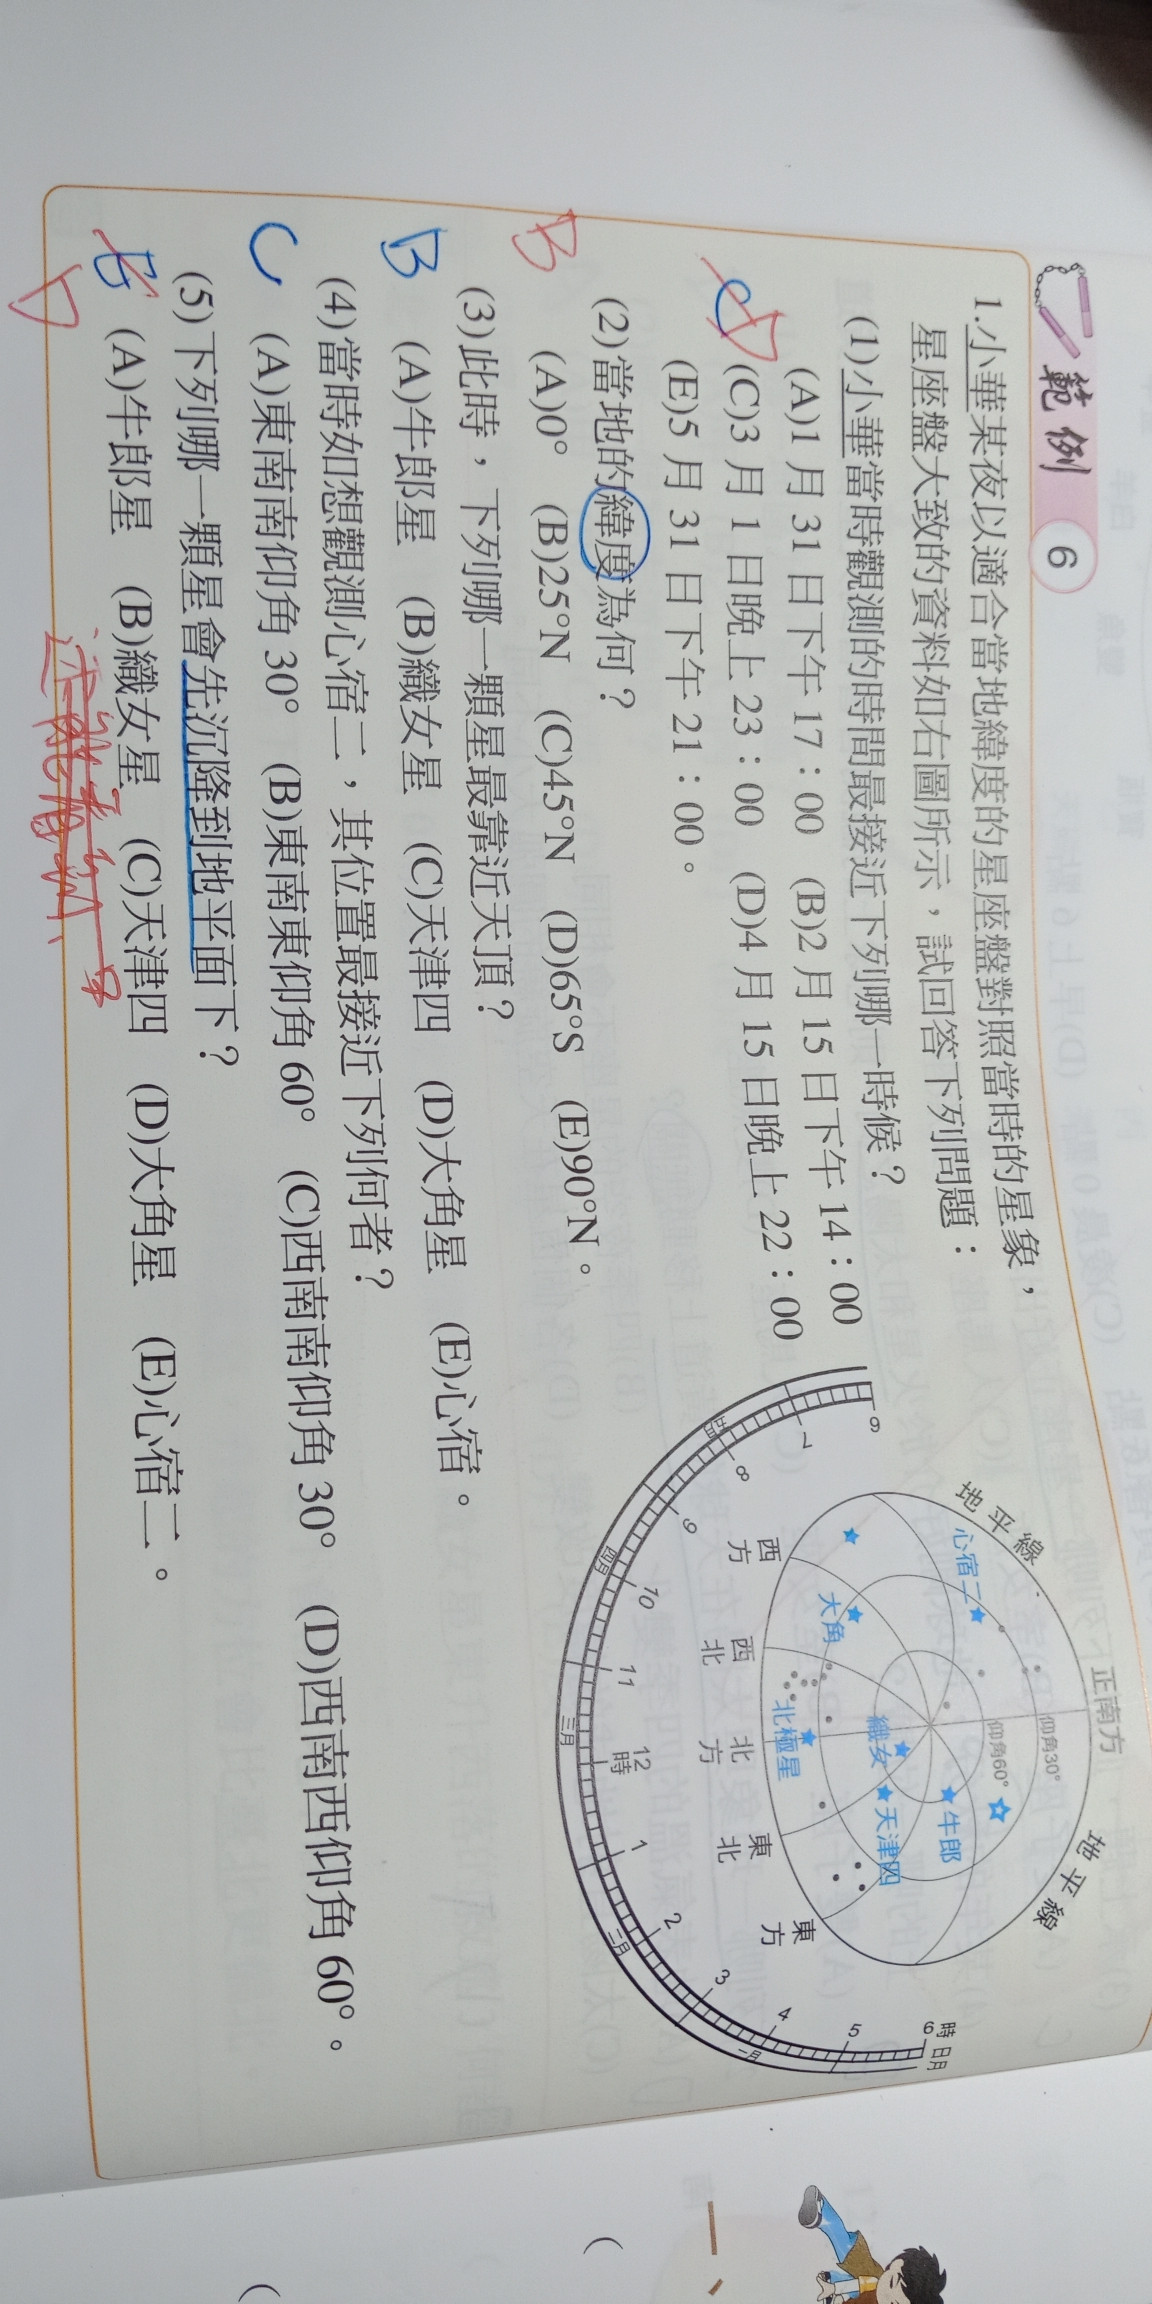 範例 6
1.小華某夜以適合當地緯度的星座盤對照當時的星象，
星座盤大致的資料如右圖所示，試回答下列問題：
(1)小華當時觀測的時間最接近下列哪一時候？
(A)1 月 31 日下午 17：00 (B)2 月 15 日下午 14：00
(C)3 月 1 日晚上 23：00 (D)4 月 15 日晚上 22：00
(E)5 月 31 日下午 21：00。
(2)當地的緯度為何？
B
(A)0° (B)25°N (C)45°N (D)65°S (E)90°N。
(3)此時，下列哪一顆星最靠近天頂？
B
(A)牛郎星 (B)織女星 (C)天津四 (D)大角星 (E)心宿。
(4)當時如想觀測心宿二，其位置最接近下列何者？
C
(A)東南南仰角 30° (B)東南東仰角 60° (C)西南南仰角 30° (D)西南西仰角 60°。
(5)下列哪一顆星會先沉降到地平面下？
E
(A)牛郎星 (B)織女星 (C)天津四 (D)大角星 (E)心宿二。
正南方
地平線
地平線
仰角30°
仰角60°
心宿二
大角
織女
牛郎
天津四
北極星
西方
西北
北方
東北
東方
6
7
8
9
10
11
12時
1
2
3
4
5
6時
日月
四月
三月
二月
一月